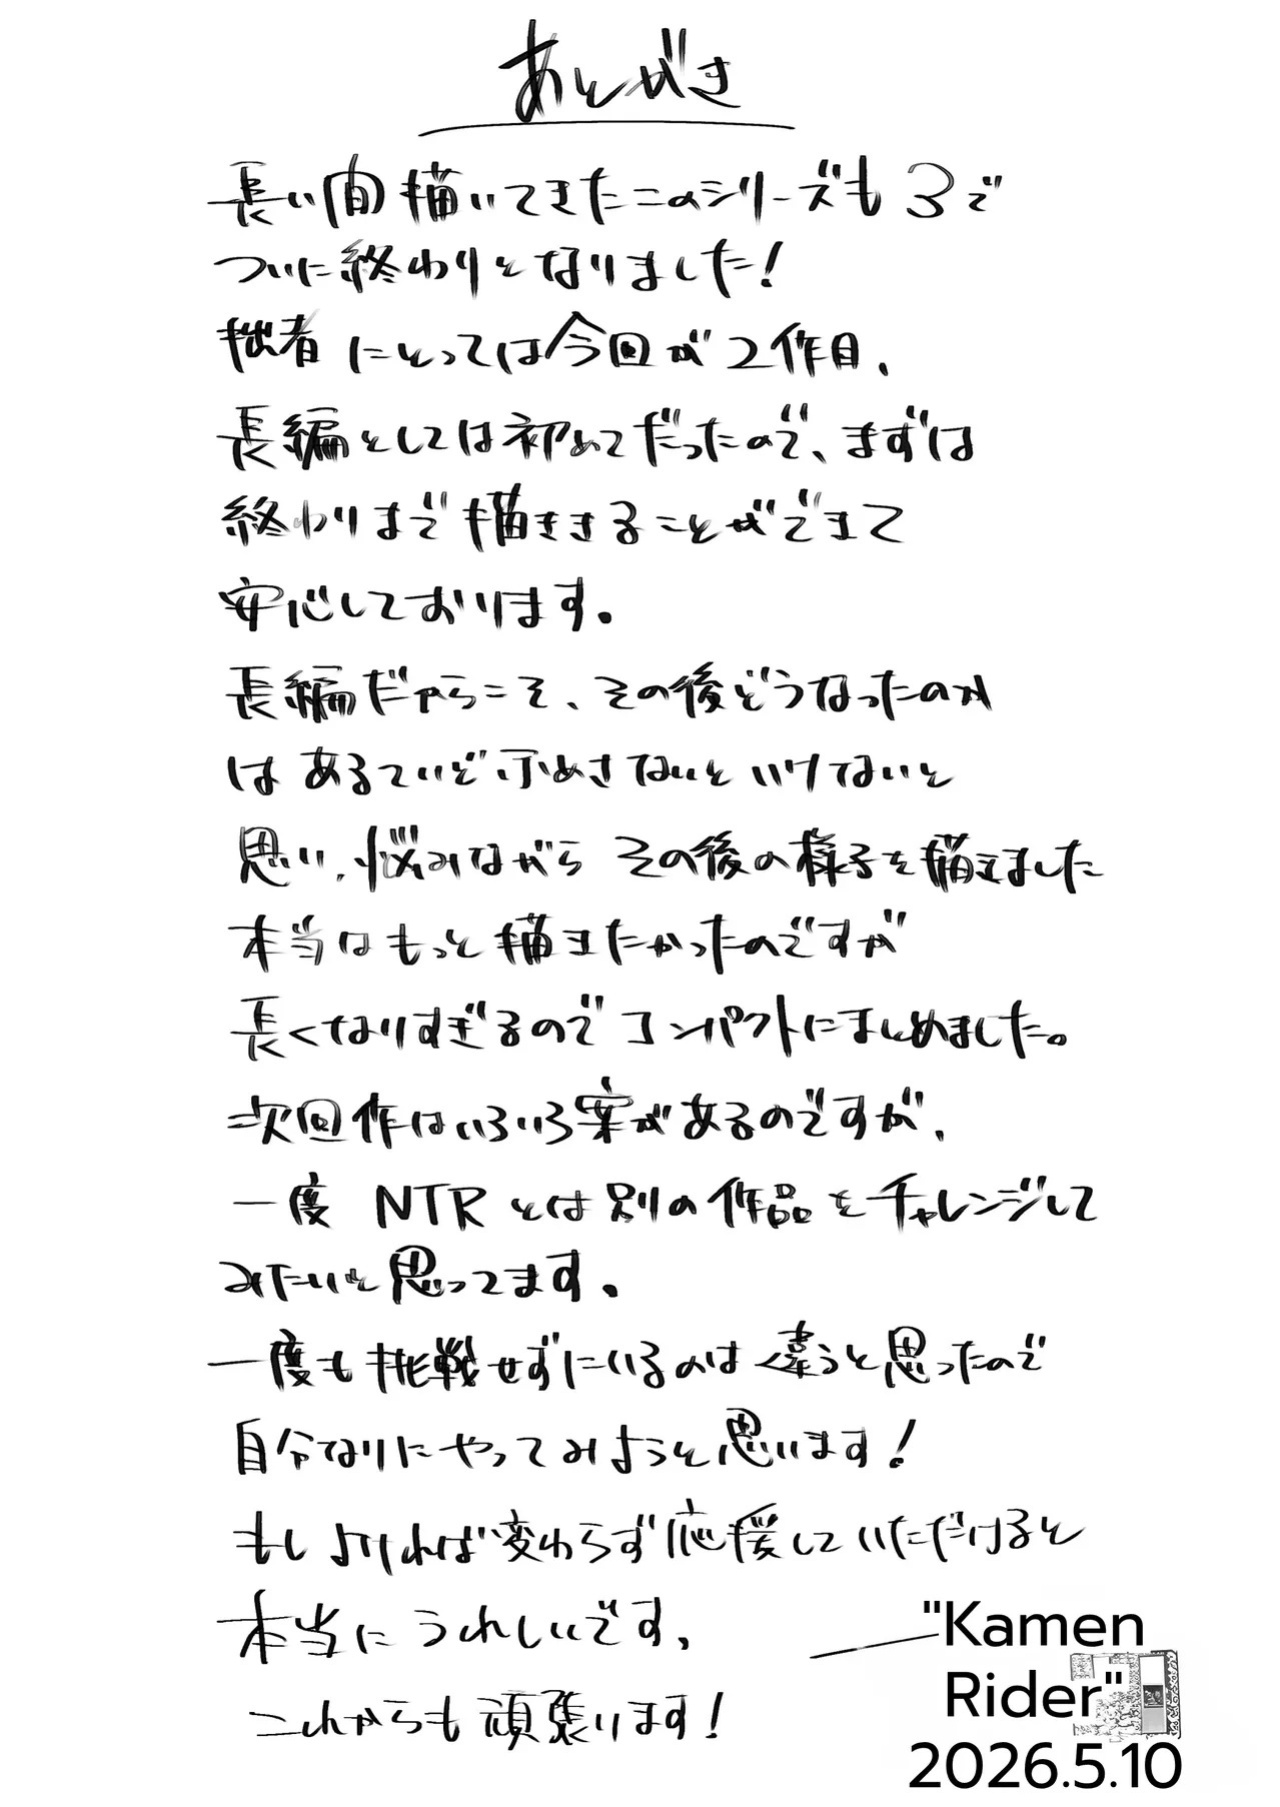 あとがき
長い間描いてきたこのシリーズも3で
ついに終わりとなりました!
拙者にとっては今回が2作目、
長編としては初めてだったので、まずは
終わりまで描ききることができて
安心しております。
長編だからこそ、その後どうなったのか
はあるていど示めさないといけないと
思い、悩みながらその後の様子を描きました
本当はもっと描きたかったのですが
長くなりすぎるのでコンパクトにまとめました。
次回作はいろいろ案があるのですが、
一度 NTRとは別の作品をチャレンジして
みたいと思ってます。
一度も挑戦せずにいるのは違うと思ったので
自分なりにやってみようと思います!
もしよければ変わらず応援していただけると
本当にうれしいです、
これからも頑張ります!
"Kamen
Rider"
2026.5.10